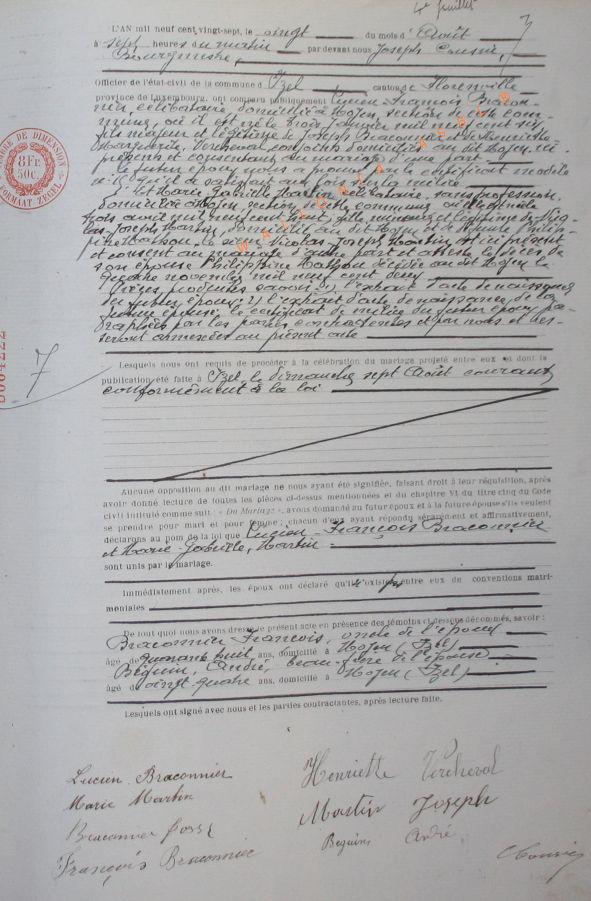 4e feuillet
7
L'AN mil neuf cent vingt-sept, le vingt du mois d'Août
à sept heures du matin par devant nous Joseph
Bourgmestre,
Officier de l'état-civil de la commune d'Izel canton de Florenville
province de Luxembourg, ont comparu publiquement Lucien François Bracon-
nier, célibataire, domicilié à Moyen, section de cette com-
mune, où il est né le trois janvier mil neuf cent six
fils majeur et légitime de Joseph Braconnier et de Henriette
Marguerite, Vercheval, conjoints domiciliés au dit Moyen, ici
présents et consentant au mariage d'une part
Le futur époux nous a produit un certificat modèle
qu'il a satisfait aux lois sur la milice
Et Marie Gabrielle Martin célibataire, sans profession,
domiciliée à Moyen, section de cette commune où elle est née
trois avril mil neuf cent huit, fille mineure et légitime de Nico-
las Joseph Martin, domicilié au dit Moyen et de Philip-
pine Mathon, le sieur Nicolas Joseph Martin, ici présent
et consent au mariage d'autre part et atteste le décès de
son épouse Philippine Mathon décédée au dit Moyen le
novembre mil neuf cent
Pièces produites savoir 1) l'extrait d'acte de naissance
du futur époux; 2) l'extrait d'acte de naissance de la
future épouse, le certificat de milice du futur époux pa-
raphées par les parties contractantes et par nous et res-
teront annexées au présent acte
Lesquels nous ont requis de procéder à la célébration du mariage projeté entre eux et dont la
publication été faite à Izel, le dimanche sept Août courant
conformément à la loi
Aucune opposition au dit mariage ne nous ayant été signifiée, faisant droit à leur réquisition, après
avoir donné lecture de toutes les pièces ci-dessus mentionnées et du chapitre VI du titre cinq du Code
civil intitulé comme suit : « Du Mariage », avons demandé au futur époux et à la future épouse s'ils veulent
se prendre pour mari et pour femme; chacun d'eux ayant répondu séparément et affirmativement,
déclarons au nom de la loi que Lucien François Braconnier
et Marie Gabrielle, Martin
sont unis par le mariage.
Immédiatement après, les époux ont déclaré qu'il existe entre eux de conventions matri-
moniales
De tout quoi nous avons dressé le présent acte en présence des témoins ci-dessous dénommés, savoir :
Braconnier François, oncle de l'époux
âgé de quarante huit ans, domicilié à Moyen (Izel)
Bequin, André beau-frère de l'épouse
âgé de vingt-quatre ans, domicilié à Moyen (Izel)
Lesquels ont signé avec nous et les parties contractantes, après lecture faite.
TIMBRE DE DIMENSION
8 Fr.
50 C.
FORMAAT ZEGEL
7
Lucien Braconnier
Henriette Vercheval
Marie Martin
Martin Joseph
Braconnier
Bequin André
François Braconnier